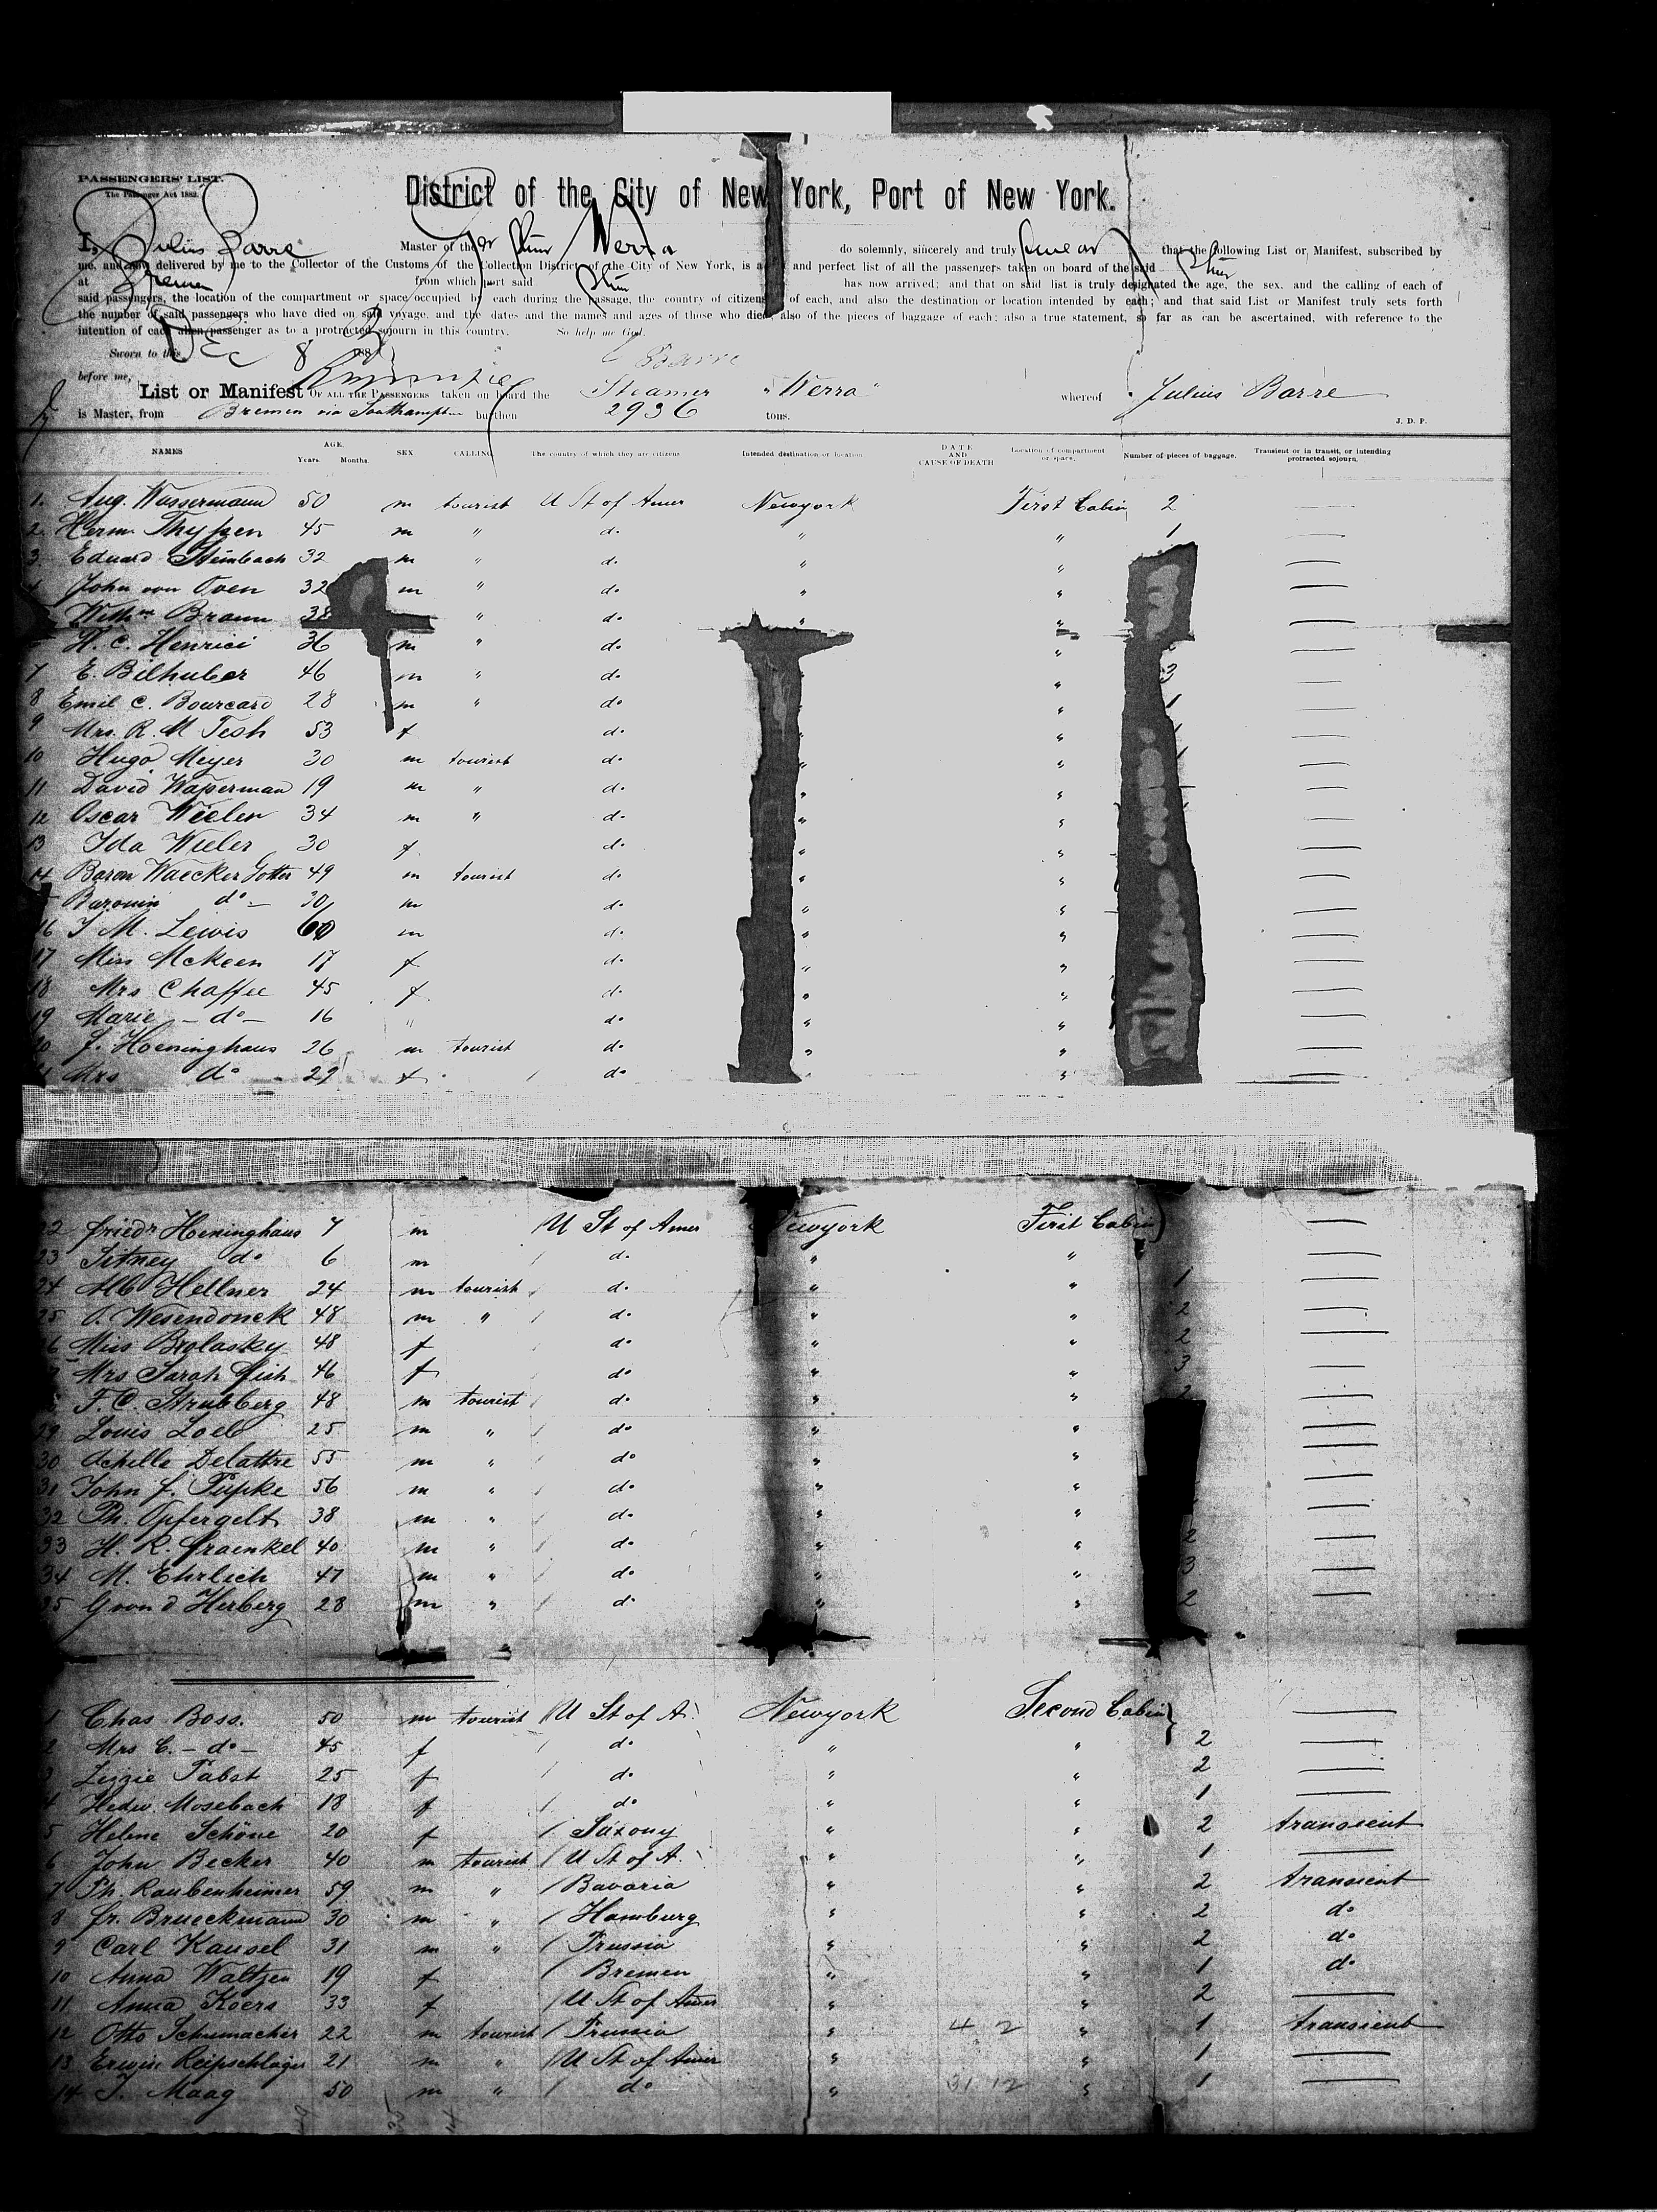 PASSENGERS' LIST.
The Passenger Act 1882.
District of the City of New York, Port of New York.
I, Julius Barre Master of the Werra do solemnly, sincerely and truly swear that the following List or Manifest, subscribed by
me, and now delivered by me to the Collector of the Customs of the Collection District of the City of New York, is a and perfect list of all the passengers taken on board of the said
at Bremen from which port said has now arrived; and that on said list is truly designated the age, the sex, and the calling of each of
said passengers, the location of the compartment or space occupied by each during the passage, the country of citizens of each, and also the destination or location intended by each; and that said List or Manifest truly sets forth
the number of said passengers who have died on said voyage, and the dates and the names and ages of those who died; also of the pieces of baggage of each; also a true statement, so far as can be ascertained, with reference to the
intention of each alien passenger as to a protracted sojourn in this country. So help me God.
Sworn to this Dec 8 188 Barre
before me,
List or Manifest OF ALL THE PASSENGERS taken on board the Steamer "Werra" whereof Julius Barre
is Master, from Bremen via Southampton burthen 2936 tons.
J. D. P.
NAMES AGE. Years. Months. SEX CALLING The country of which they are citizens Intended destination or location DATE AND CAUSE OF DEATH Location of compartment or space. Number of pieces of baggage. Transient or in transit, or intending protracted sojourn.
1. Aug. Wassermann 50 m tourist U St of Amer Newyork First Cabin 2 —
2. Herm. Thyssen 45 m " do " " 1 —
3. Eduard Steinbach 32 m " do " " —
John von Oven 32 m " do " " —
Willm Braun 38 " do " " —
H. C. Henrici 36 m " do " —
7 E. Bilhuber 46 m " do " 3 —
8 Emil C. Bourcard 28 m " do " " 1 —
9 Mrs. R. M Tesh 53 f do " " —
10 Hugo Meyer 30 m tourist do " " —
11 David Wasserman 19 m " do " " —
12 Oscar Wieler 34 m " do " " —
13 Ida Wieler 30 f do " " —
14 Baron Waecker Gotter 49 m tourist do " " —
Baronin do — 30 m do " " —
16 J M. Lewis 60 m do " " —
17 Miss McKeen 17 f do " " —
18 Mrs Chaffee 45 f. do " " —
19 Marie — do — 16 " do " " —
20 F. Hoeninghaus 26 m tourist do " " —
Mrs do 29 f do " " —
22 Friedr Hoeninghaus 7 m U St of Amer Newyork First Cabin —
23 Sitney do 6 m do " " —
24 Hellner 24 m tourist do " " 1 —
25 O. Wesendonck 48 m " do " " 2 —
26 Miss Brolasky 48 f do " " 2 —
Mrs Sarah Fish 46 f do " " 3 —
F. C. Strubberg 48 m tourist do " " —
29 Louis Loeb 25 m " do " " —
30 Achille Delattre 55 m " do " " —
31 John F. Pupke 56 m " do " " —
32 Ph. Opfergelt 38 m " do " " —
33 H. R. Fraenkel 40 m " do " " 2 —
34 M. Ehrlich 47 m " do " " 3 —
35 G von d Herberg 28 m " do " " 2 —
1 Chas Boss. 50 m tourist U St of A. Newyork Second Cabin —
2 Mrs C. — do — 45 f do " " 2 —
3 Lizzie Pabst 25 f do " " 2 —
4 Hedw. Mosebach 18 f do " " 1 —
5 Helene Schöne 20 f Saxony " " 2 transient
6 John Becker 40 m tourist U St of A. " " 1 —
7 Ph. Raubenheimer 59 m " Bavaria " " 2 transient
8 Fr. Brueckmann 30 m " Hamburg " " 2 do
9 Carl Kausel 31 m " Prussia " " 2 do
10 Anna Waltzen 19 f Bremen " " 1 do
11 Anna Koers 33 f U St of Amer " " 2 —
12 Otto Schumacher 22 m tourist Prussia " 4 12 " 1 transient
13 Erwin Reipschläger 21 m " U St of Amer " " 1 —
14 J. Maag 50 m " do " 31 12 " 1 —